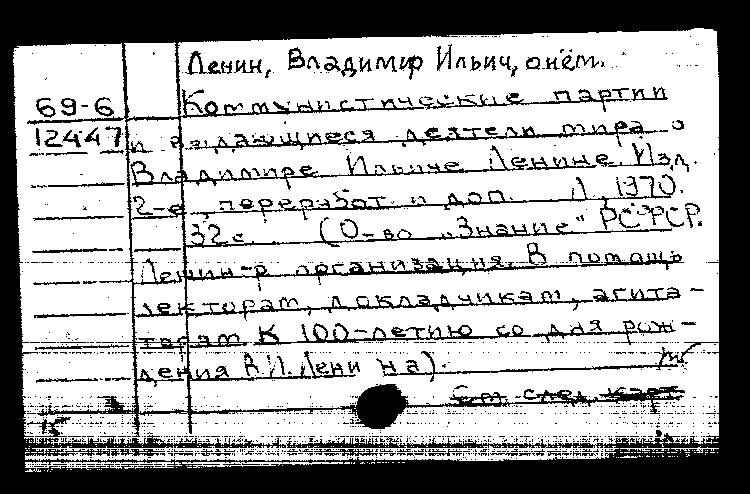 Ленин, Владимир Ильич, о нём.
69-6 Коммунистические партии
12447 и выдающиеся деятели мира о
Владимире Ильиче Ленине. Изд.
2-е, переработ. и доп. Л., 1970.
32с. (О-во „Знание" РСФСР.
Ленингр организация. В помощь
лекторам, докладчикам, агита-
торам. К 100-летию со дня рож-
дения В.И.Ленина).
См. след. карт
15